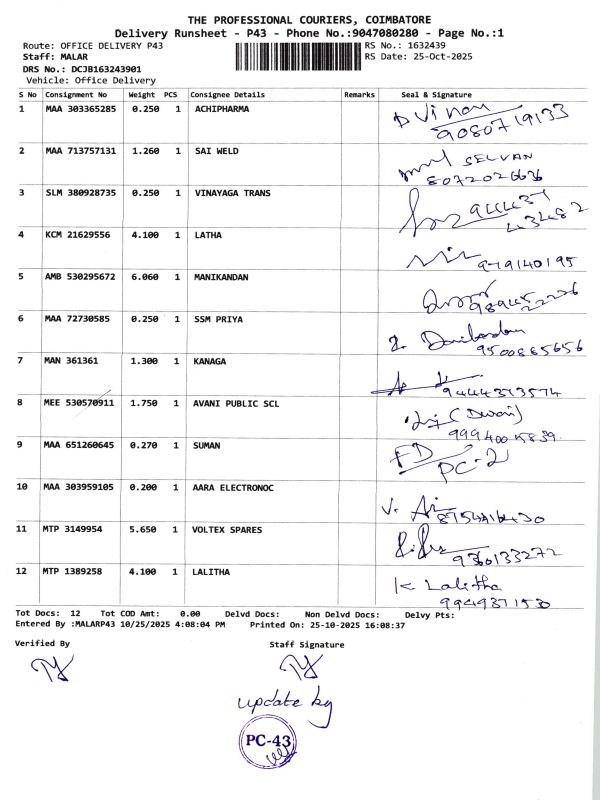 THE PROFESSIONAL COURIERS, COIMBATORE
Delivery Runsheet - P43 - Phone No.:9047080280 - Page No.:1
Route: OFFICE DELIVERY P43 RS No.: 1632439
Staff: MALAR RS Date: 25-Oct-2025
DRS No.: DCJB163243901
Vehicle: Office Delivery
S No Consignment No Weight PCS Consignee Details Remarks Seal & Signature
1 MAA 303365285 0.250 1 ACHIPHARMA
9080719133
2 MAA 713757131 1.260 1 SAI WELD SELVAN
8072026636
3 SLM 380928735 0.250 1 VINAYAGA TRANS
4 KCM 21629556 4.100 1 LATHA
9791140195
5 AMB 530295672 6.060 1 MANIKANDAN
6 MAA 72730585 0.250 1 SSM PRIYA
9500885656
7 MAN 361361 1.300 1 KANAGA
9444373574
8 MEE 530570911 1.750 1 AVANI PUBLIC SCL
9 MAA 651260645 0.270 1 SUMAN
PC-2
10 MAA 303959105 0.200 1 AARA ELECTRONOC
11 MTP 3149954 5.650 1 VOLTEX SPARES
9360133272
12 MTP 1389258 4.100 1 LALITHA K Lalitha
9949371530
Tot Docs: 12 Tot COD Amt: 0.00 Delvd Docs: Non Delvd Docs: Delvy Pts:
Entered By :MALARP43 10/25/2025 4:08:04 PM Printed On: 25-10-2025 16:08:37
Verified By Staff Signature
update by
PC-43